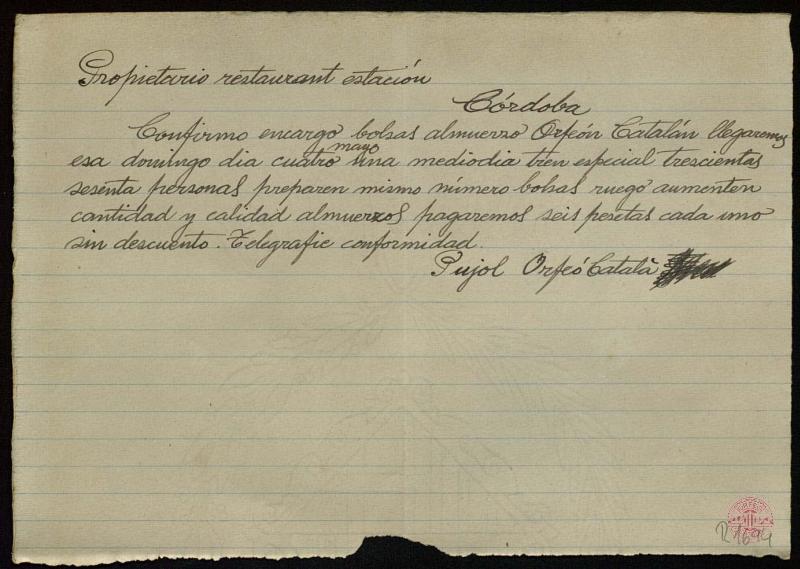 Propietario restaurant estación
Córdoba
Confirmo encargo bolsas almuerzo Orfeón Catalán llegaremos
mayo
esa domingo dia cuatro una mediodia tren especial trescientas
sesenta personas preparen mismo número bolsas ruego aumenten
cantidad y calidad almuerzos pagaremos seis pesetas cada uno
sin descuento. Telegrafie conformidad.
Pujol Orfeó Català
R 1694